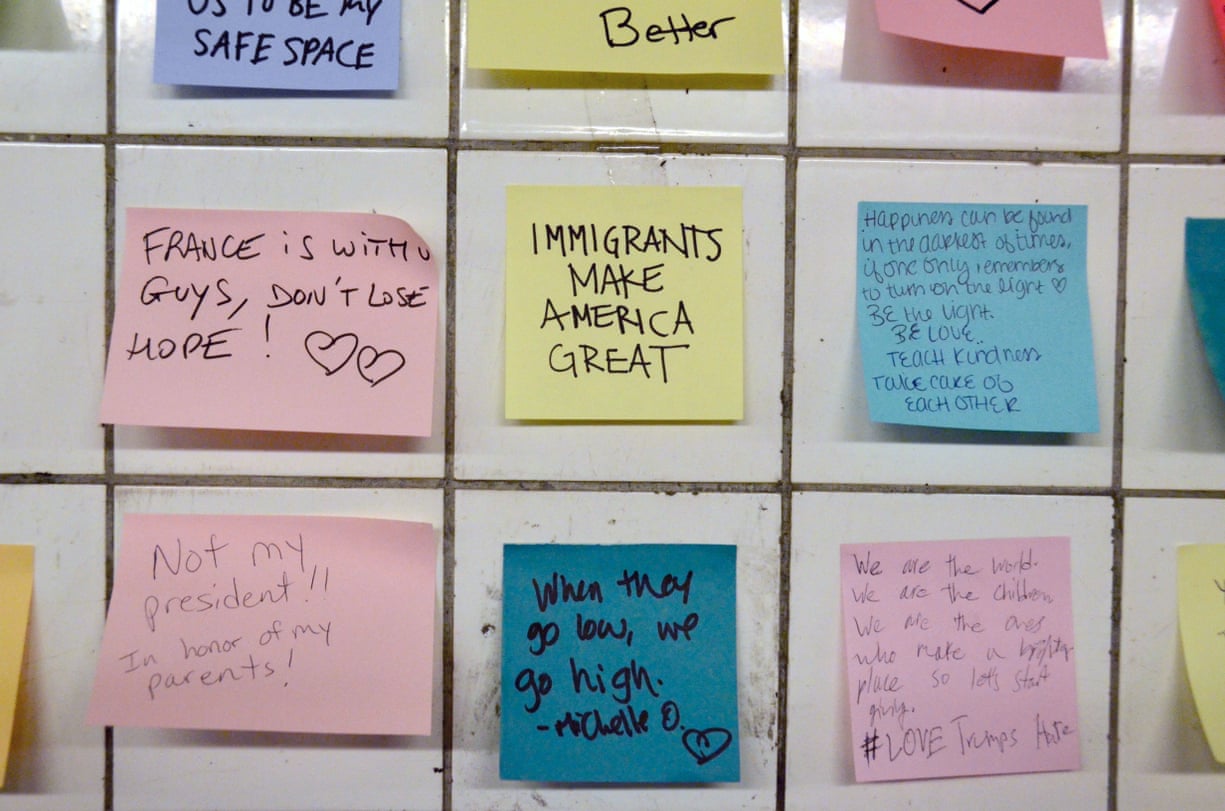 US TO BE MY
SAFE SPACE
Better
FRANCE iS WITH U
GUYS, DON'T LOSE
HOPE !
IMMIGRANTS
MAKE
AMERICA
GREAT
Happiness can be found
in the darkest of times,
if one only remembers
to turn on the light ♡
BE the light.
BE LOVE.
TEACH Kindness
TAKE CARE OF
EACH OTHER
Not my
president!!
In honor of my
parents!
When they
go low, we
go high.
-Michelle O.
We are the world.
We are the children
We are the ones
who make a brighter
place so let's start
giving.
#LOVE Trumps Hate